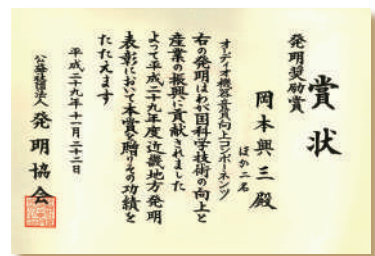 賞状
発明奨励賞
岡本興三殿
ほか二名
オーディオ機器音質向上コンポーネンツ
右の発明はわが国科学技術の向上と
産業の振興に貢献されました
よって平成二十九年度近畿地方発明
表彰において本賞を贈りその功績を
たたえます
平成二十九年十一月二十二日
公益社団法人 発明協会